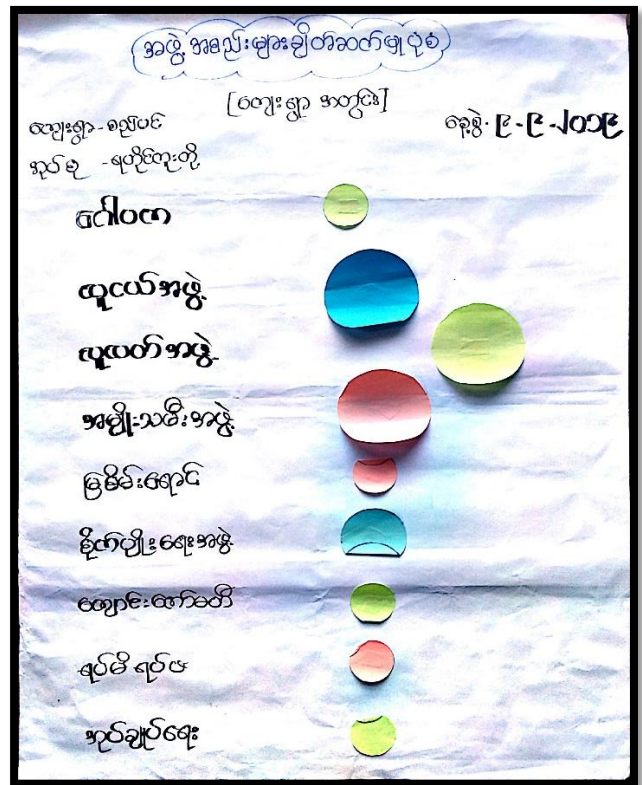 အဖွဲ့အစည်းများချိတ်ဆက်မှုပုံစံ
[ကျေးရွာ အတွင်း]
ကျေးရွာ - စည်ပင်
နေ့စွဲ - ၉-၉-၂၀၁၉
အုပ်စု -
ဂေါပက
လူငယ်အဖွဲ့
လူလတ်အဖွဲ့
အမျိုးသမီးအဖွဲ့
မြစိမ်းရောင်
စိုက်ပျိုးရေးအဖွဲ့
ကျောင်းကော်မတီ
ရပ်မိရပ်ဖ
အုပ်ချုပ်ရေး